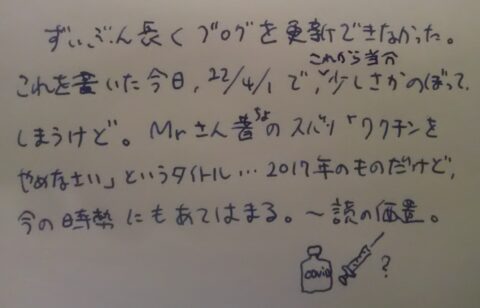 ずいぶん長くブログを更新できなかった。
これから当分
これを書いた今日, 22/4/1 で, 少しさかのぼって,
しまうけど。Mrさん著のスバリ「ワクチンを
やめなさい」というタイトル… 2017年のものだけど,
今の時勢にもあてはまる。〜読の価置。
covid
?